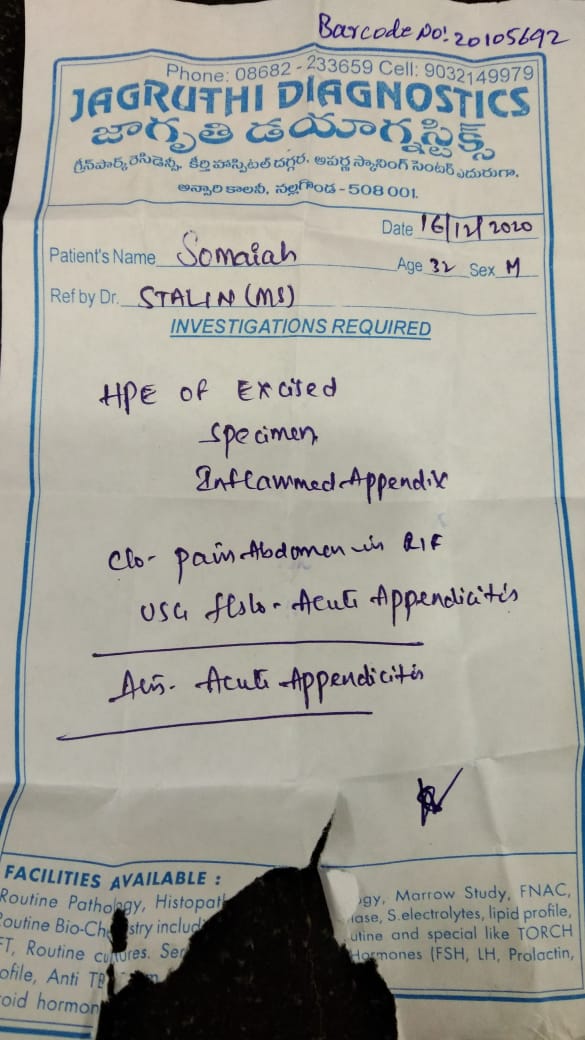 Barcode No: 20105692
Phone: 08682 - 233659 Cell: 9032149979
JAGRUTHI DIAGNOSTICS
జాగృతి డయాగ్నస్టిక్స్
గ్రీన్‌పార్క్ రెసిడెన్సీ, కీర్తి హాస్పిటల్ దగ్గర, అపర్ణ స్కానింగ్ సెంటర్ ఎదురుగా,
అన్సారి కాలనీ, నల్లగొండ - 508 001.
Date 16/12/2020
Patient's Name Somaiah Age 32 Sex M
Ref by Dr. STALIN (MS)
INVESTIGATIONS REQUIRED
HPE of Excised
specimen
Inflammed Appendix
C/o - pain Abdomen in RIF
USG f/s/o - Acute Appendicitis
Acute Appendicitis
FACILITIES AVAILABLE :
Routine Pathology, Histopat gy, Marrow Study, FNAC,
Routine Bio-Ch stry includ ase, S.electrolytes, lipid profile,
FT, Routine cultures. Ser utine and special like TORCH
ofile, Anti TB Hormones (FSH, LH, Prolactin,
roid hormon